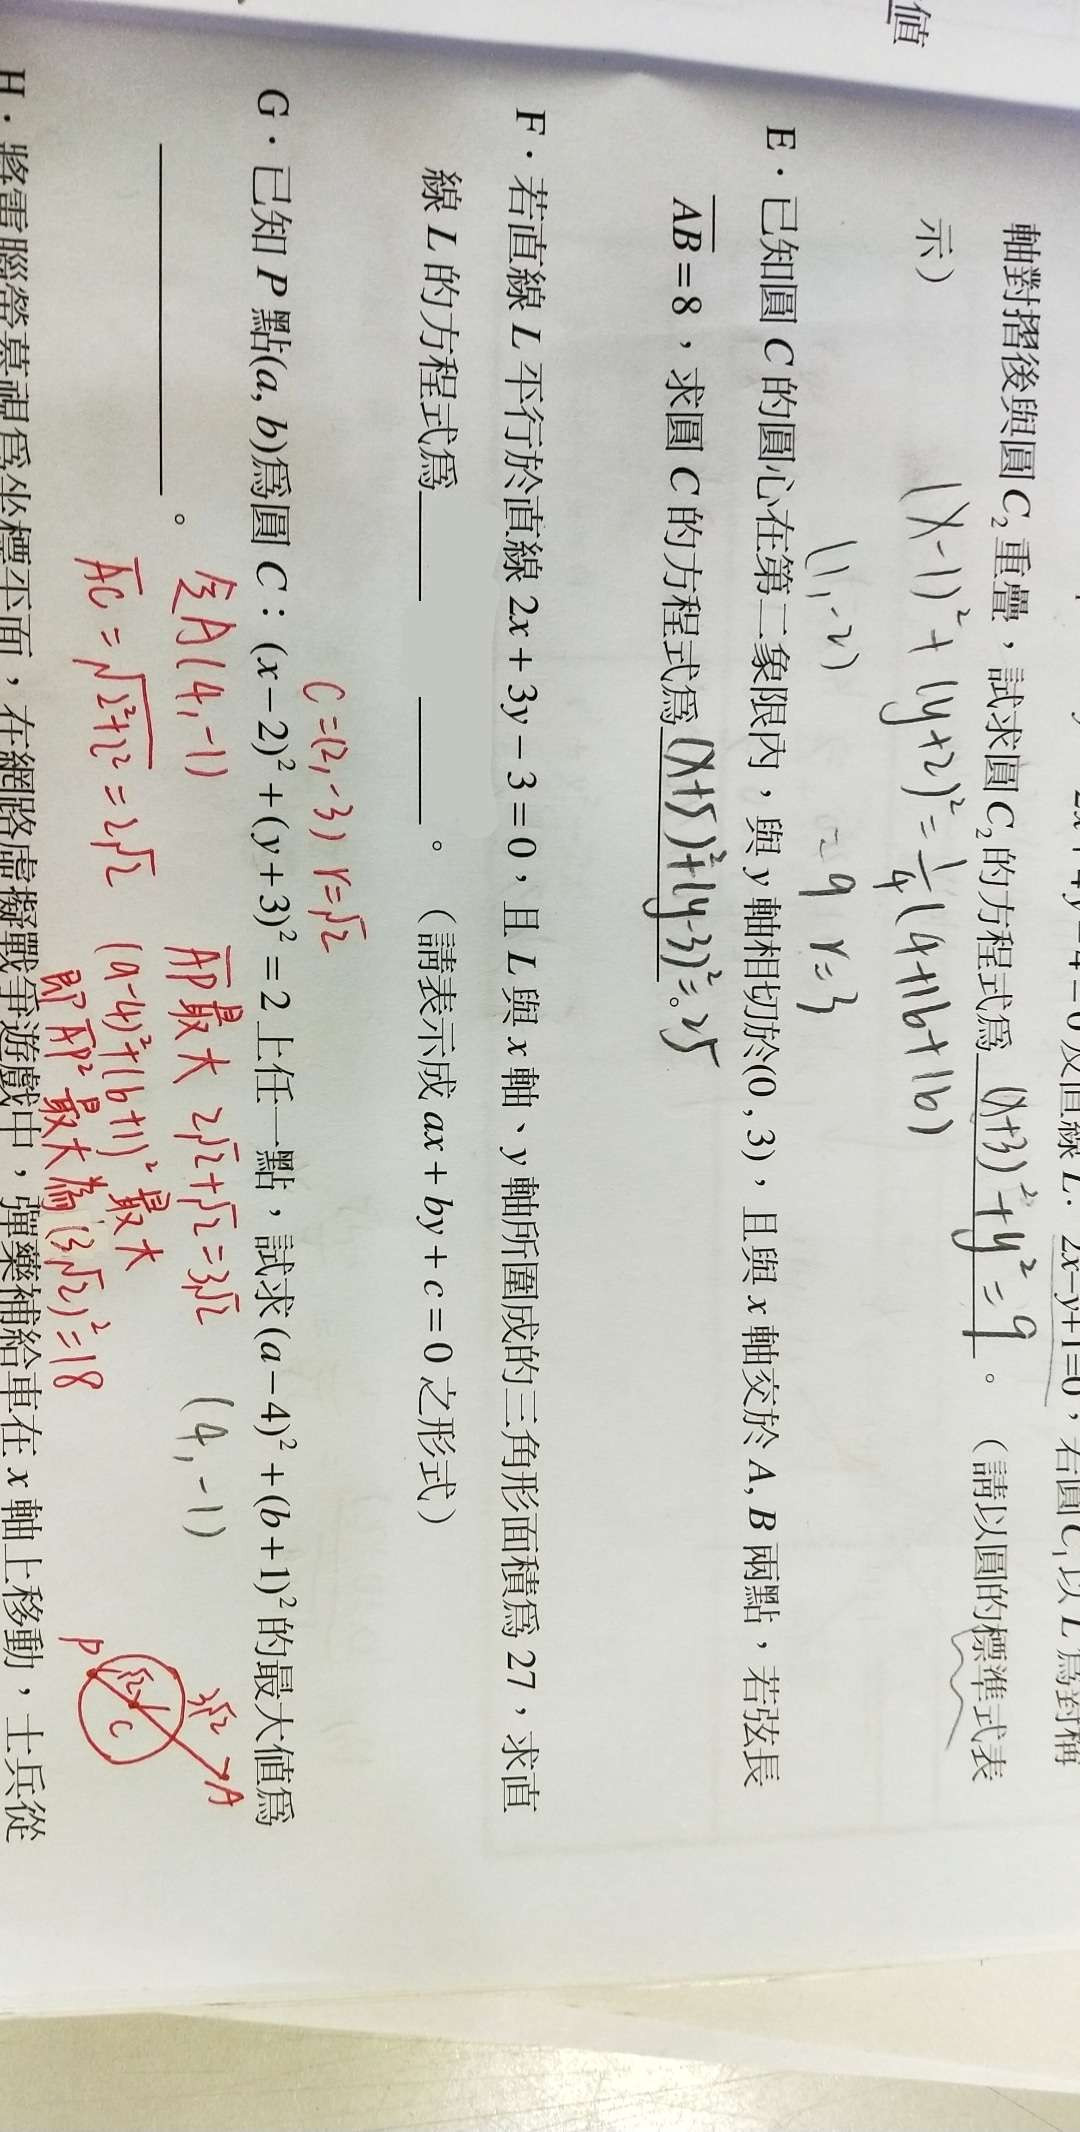 值
2x-y+1=0，若圓C₁以L為對稱
軸對摺後與圓C₂重疊，試求圓C₂的方程式為 (x+3)²+y²=9 。（請以圓的標準式表
示）
(x-1)²+(y+2)²=1/4(4+16+16)
(1,-2) =9 r=3
E．已知圓C的圓心在第二象限內，與y軸相切於(0,3)，且與x軸交於A,B兩點，若弦長
AB=8，求圓C的方程式為 (x+5)²+(y-3)²=25 。
F．若直線L平行於直線2x+3y-3=0，且L與x軸、y軸所圍成的三角形面積為27，求直
線L的方程式為 。（請表示成ax+by+c=0之形式）
C=(2,-3) r=√2
G．已知P點(a,b)為圓C：(x-2)²+(y+3)²=2上任一點，試求(a-4)²+(b+1)²的最大值為
。
令A(4,-1) AP最大 2√2+√2=3√2 (4,-1)
AC=√2²+2²=2√2 (a-4)²+(b+1)²最大
即AP²最大為(3√2)²=18
3√2 A
P √2 C
H．將電腦螢幕視為坐標平面，在網路虛擬戰爭遊戲中，彈藥補給車在x軸上移動，士兵從